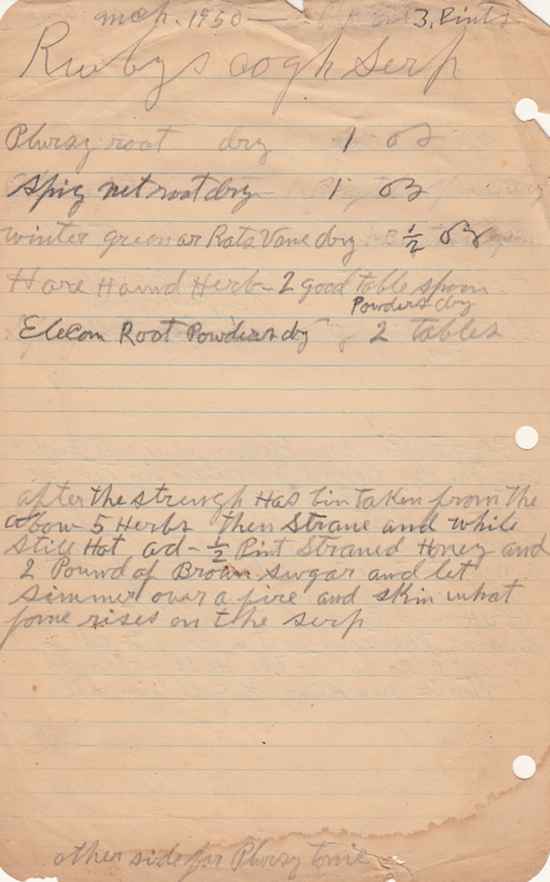 mch. 1950 — 3, Pints
Rubys cogh serp
Plursy root dry 1 oz
Spig net root dry 1 oz
winter green or Rats Vane dry ½ oz
Hore Hound Herb - 2 good table spoon
Powders dry
Elecom Root Powders dry 2 tables
after the strengh Has bin taken from the
abow 5 Herbs then Strane and while
still Hot ad - ½ Pint Straned Honey and
2 Pound of Brown sugar and let
simmer over a fire and skin what
fome rises on the serp
other side for Plursy tonic